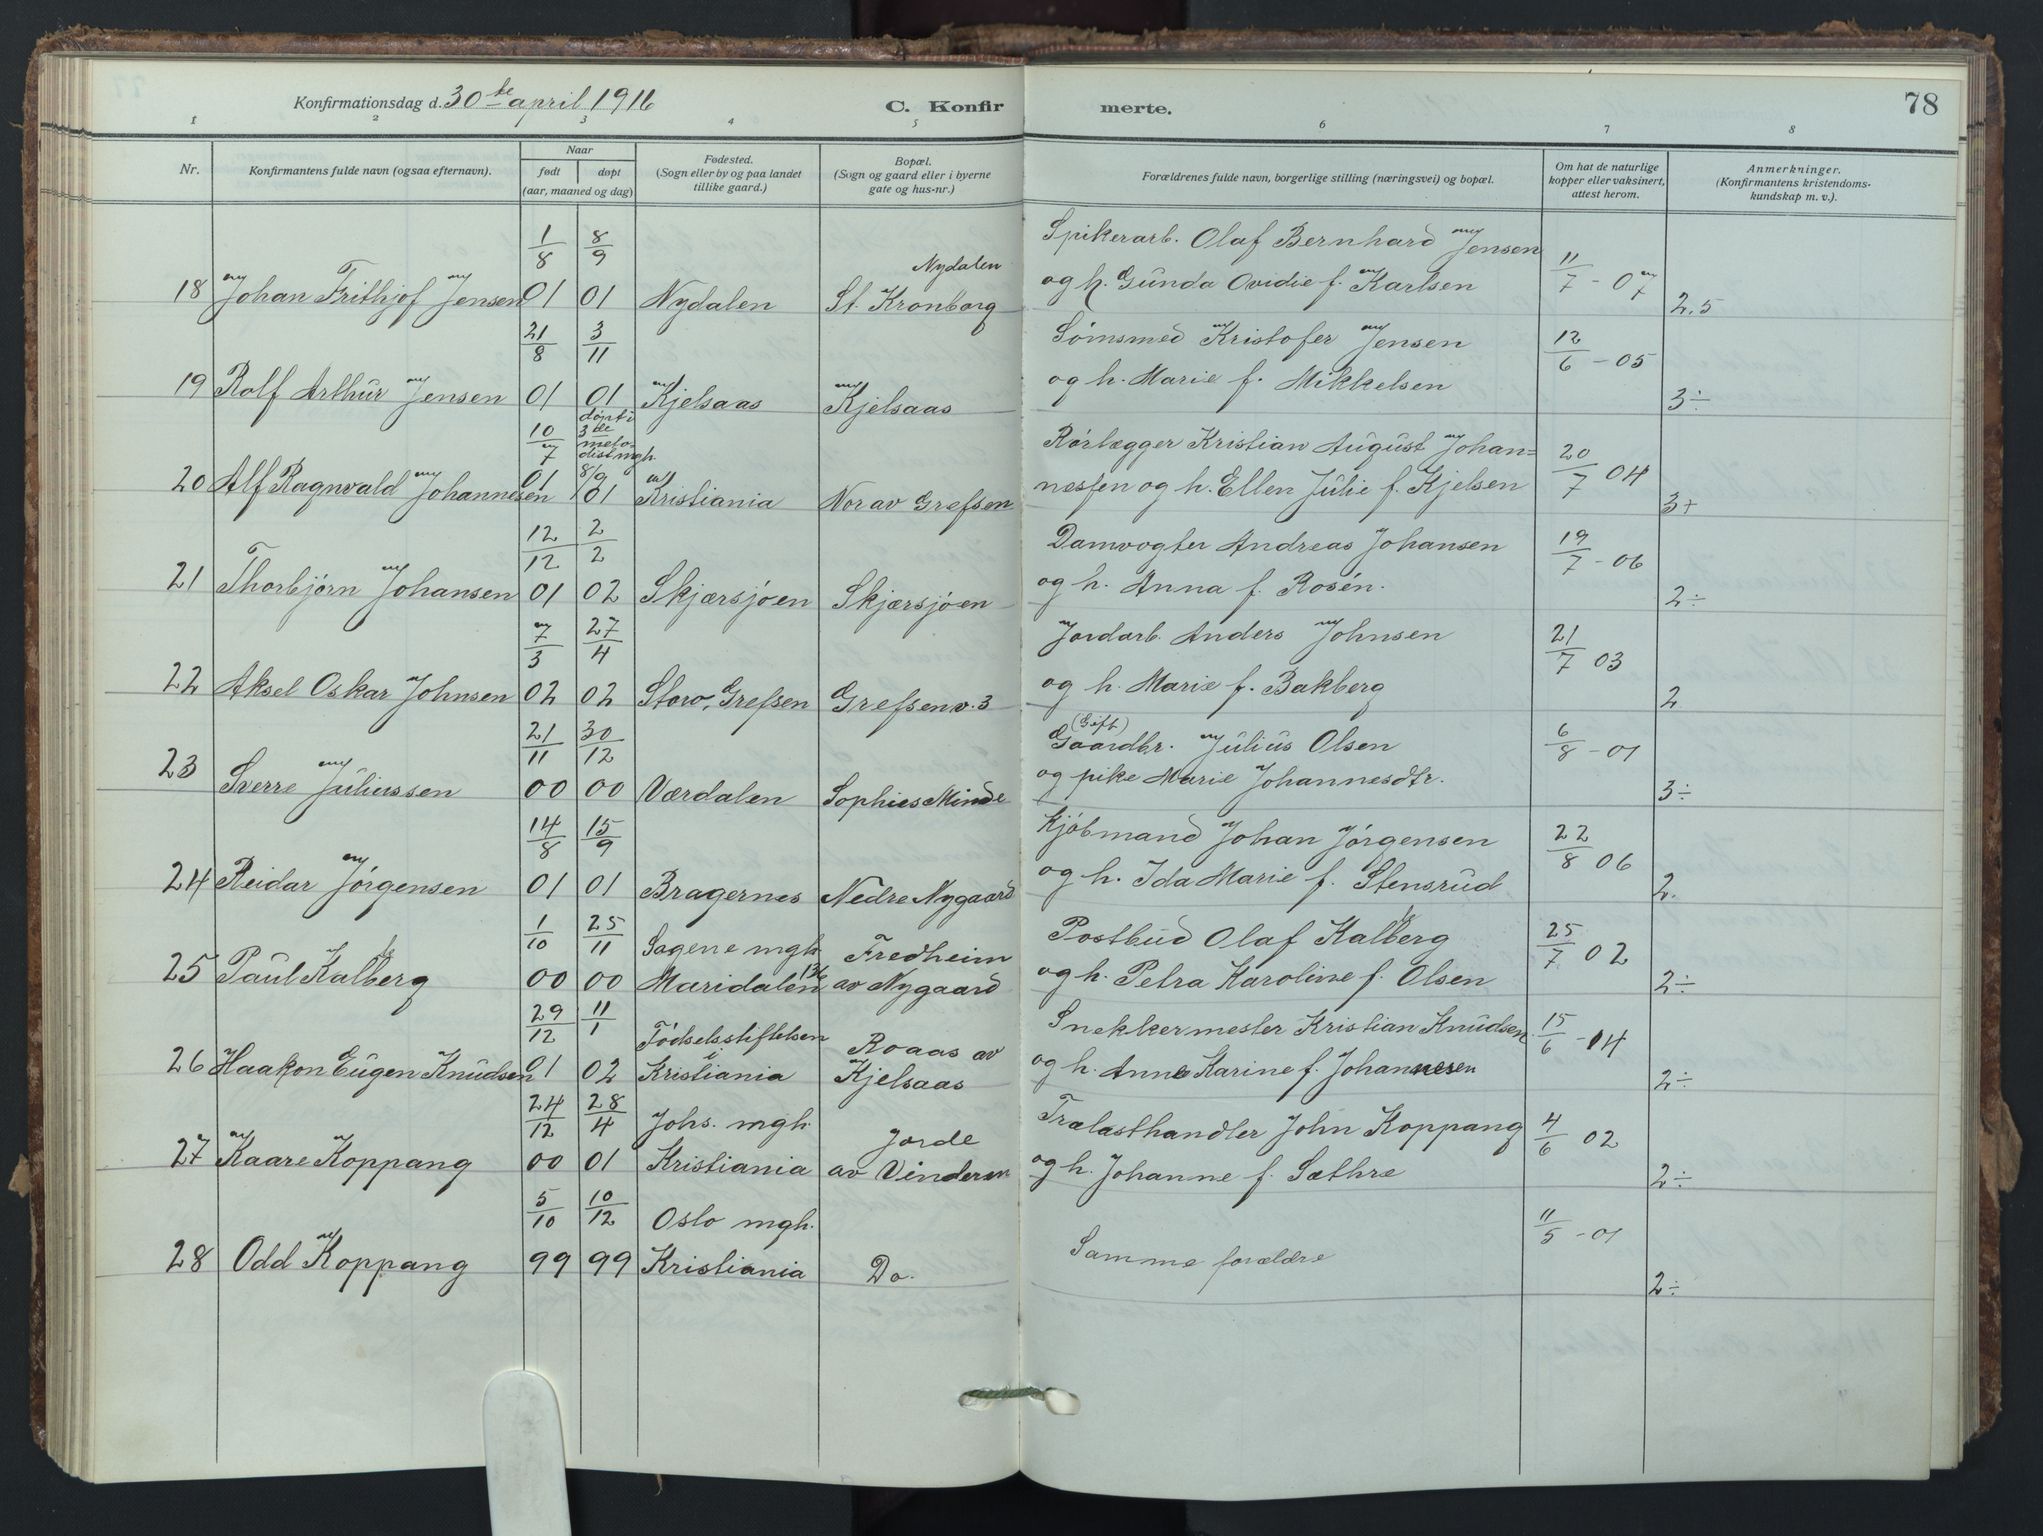 Konfirmationsdag d. 30te april 1916
C. Konfirmerte.
78
1 2 3 4 5 6 7 8
Nr.
Konfirmantens fulde navn (ogsaa efternavn).
Naar
født døpt
(aar, maaned og dag)
Fødested.
(Sogn eller by og paa landet
tillike gaard.)
Bopæl.
(Sogn og gaard eller i byerne
gate og hus-nr.)
Forældrenes fulde navn, borgerlige stilling (næringsvei) og bopæl.
Om hat de naturlige
kopper eller vaksinert,
attest herom.
Anmerkninger.
(Konfirmantens kristendoms-
kundskap m. v.).
18 Johan Frithjof Jensen 1/8 01 8/9 01 Nydalen
Nydalen
St. Kronborg
Spikerarb. Olaf Bernhard Jensen
og h. Gunda Ovidie f. Karlsen
11/7 - 07 2.5
19 Rolf Arthur Jensen 21/8 01 3/11 01 Kjelsaas Kjelsaas
Sømsmed Kristofer Jensen
og h. Marie f. Mikkelsen
12/6 - 05 3÷
20 Alf Ragnvald Johannesen 10/7 01
døpt i
3de
meto-
dist mgh.
8/9 01
Kristiania Nor av Grefsen
Rørlægger Kristian August Johan=
nessen og h. Ellen Julie f. Kjelsen
20/7 04 3+
21 Thorbjørn Johansen 12/12 01 2/2 02 Skjærsjøen Skjærsjøen
Damvogter Andreas Johansen
og h. Anna f. Rosén.
19/7 - 06 2÷
22 Aksel Oskar Johnsen 7/3 02 27/4 02 Storo, Grefsen Grefsenv. 3
Jordarb. Anders Johnsen
og h. Marie f. Bakberg
21/7 03 2
23 Sverre Juliussen 21/11 00 30/12 00 Værdalen Sophies Minde
(Gift)
Gaardbr. Julius Olsen
og pike Marie Johannesdtr.
6/8 - 01 3÷
24 Reidar Jørgensen 14/8 01 15/9 01 Bragernes Nedre Nygaard
Kjøbmand Johan Jørgensen
og h. Ida Marie f. Stensrud
22/8 06 2.
25 Paul Kalberg 1/10 00 25/11 00
Sagene mgh.
Maridalen 136
Fredheim
av Nygaard
Postbud Olaf Kalberg
og h. Petra Karoline f. Olsen
25/7 02 2÷
26 Haakon Eugen Knudsen 29/12 01 11/1 02
Fødselsstiftelsen
i
Kristiania
Roaas av
Kjelsaas
Snekkermester Kristian Knudsen
og h. Anna Karine f. Johannesen
15/6 - 14 2÷
27 Kaare Koppang 24/12 00 28/4 01
Johs. mgh.
Kristiania
Jorde
av Vinderen
Trælasthandler John Koppang
og h. Johanne f. Sæthre
4/6 02 2÷
28 Odd Koppang 5/10 99 10/12 99
Oslo mgh.
Kristiania
Do.
Samme forældre
11/5 - 01 2÷